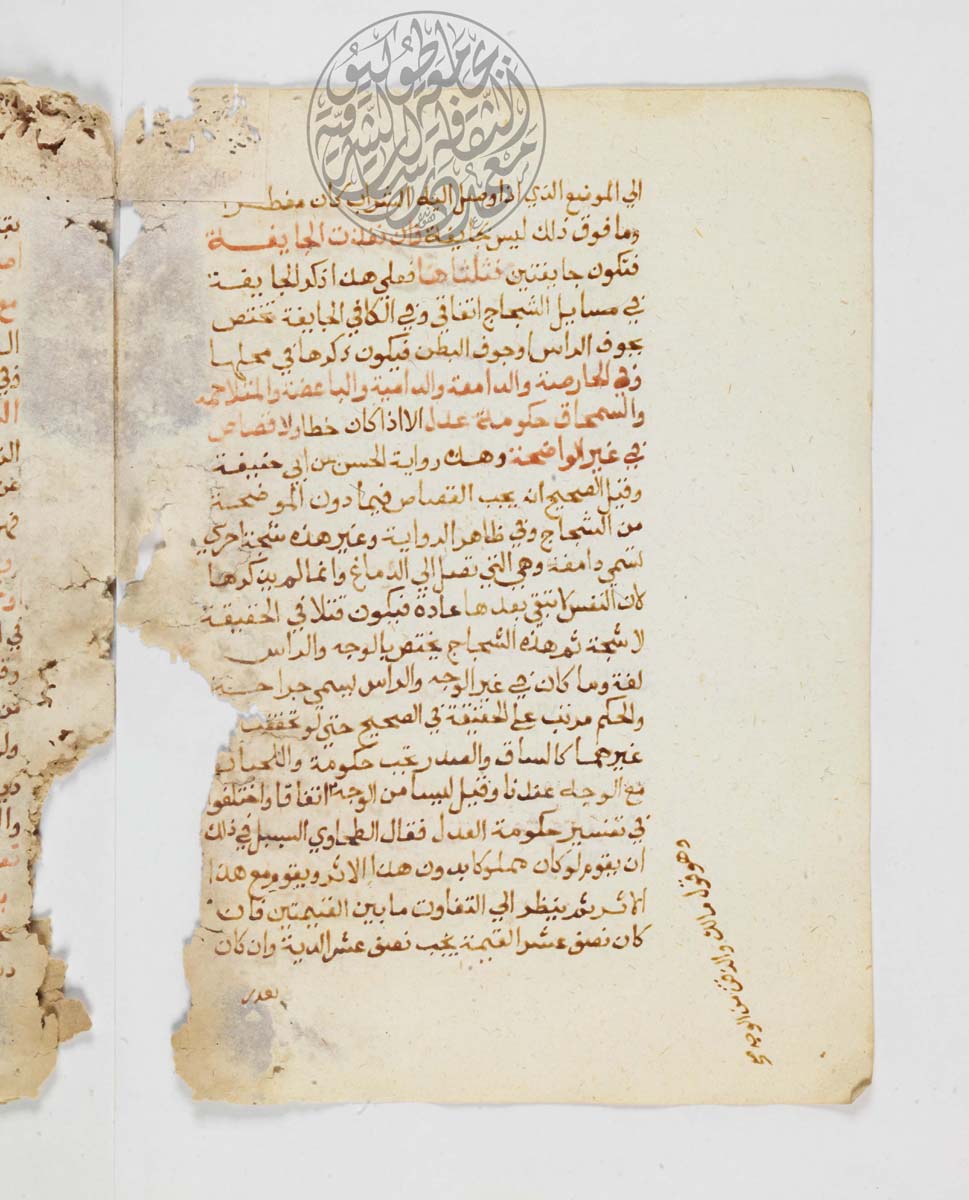 الي الموضع الذي اذا وصل اليه الشراب كان مفطرا
وما فوق ذلك ليس بجايفة فان نفذت الجايفة
فتكون جايفتين فثلثاها فعلي هذا ذكر الجايفة
في مسايل الشجاج اتفاقي وفي الكافي الجايفة تختص
بجوف الراس اوجوف البطن فيكون ذكرها في محلها
وفي الحارصة والدامعة والدامية والباضعة والمتلاحمة
والسمحاق حكومة عدل الا اذا كان خطا ولا قصاص
في غير الواضحة وهذه رواية الحسن عن ابي حنيفة
وقيل الصحيح انه يجب القصاص فيما دون الموضحة
من الشجاج وفي ظاهر الرواية وغير هذه شجة اخري
تسمي دامغة وهي التي تصل الي الدماغ وانما لم يذكرها
لان النفس لا تبقي بعدها عادة فيكون قتلا في الحقيقة
لا شجة ثم هذه الشجاج يختص بالوجه والراس
لغة وما كان في غير الوجه والراس يسمي جراحة
والحكم مرتب علي الحقيقة في الصحيح حتي لو تحققت
غيرهما كالساق والصدر تجب حكومة واللحيان
مع الوجه عندنا وقيل ليسا من الوجه اتفاقا واختلفوا
في تفسير حكومة العدل فقال الطحاوي السبيل في ذلك
ان يقوم لو كان مملوكا بدون هذا الاثر ويقوم مع هذا
الاثر ثم ينظر الي التفاوت ما بين القيمتين فان
كان نصف عشر القيمة يجب نصف عشر الدية وان كان
بقدر
وهو قول مالك والذقن من الوجه صح